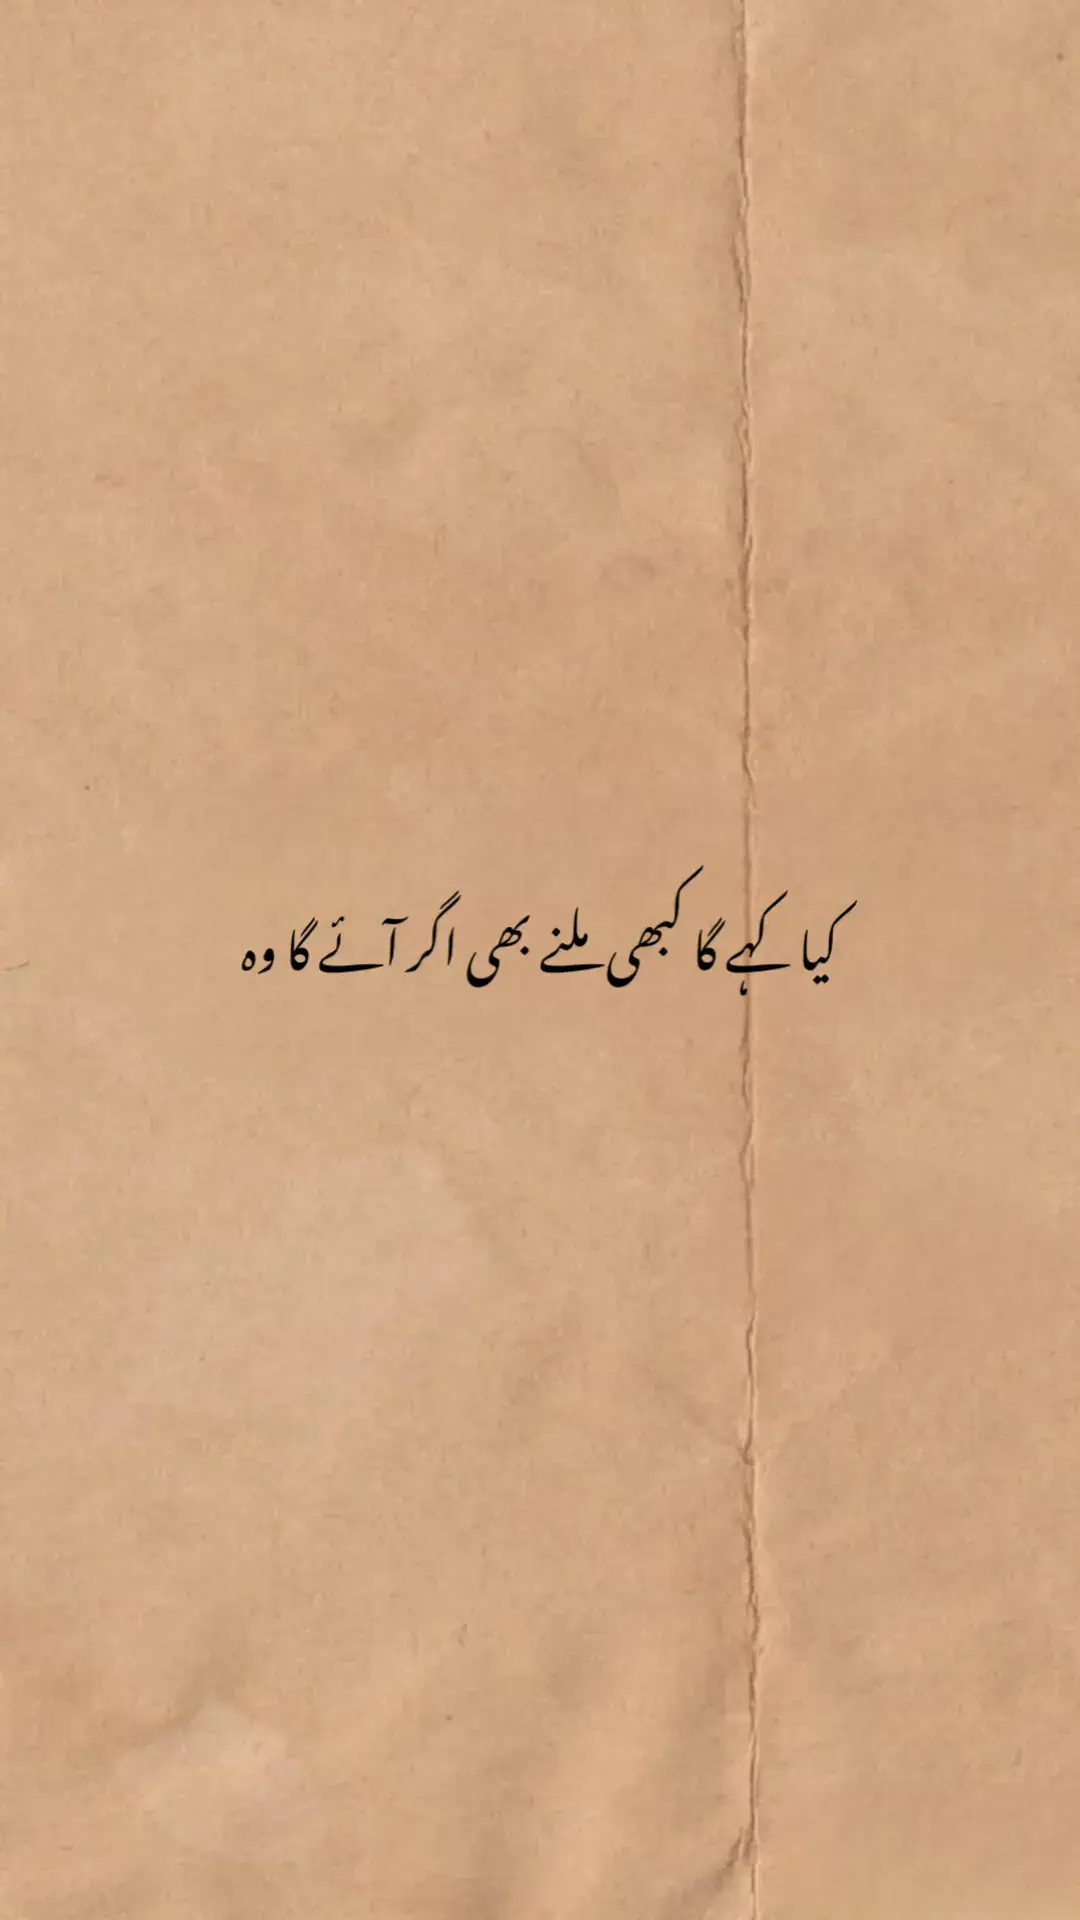 کیا کہے گا کبھی ملنے بھی اگر آئے گا وہ